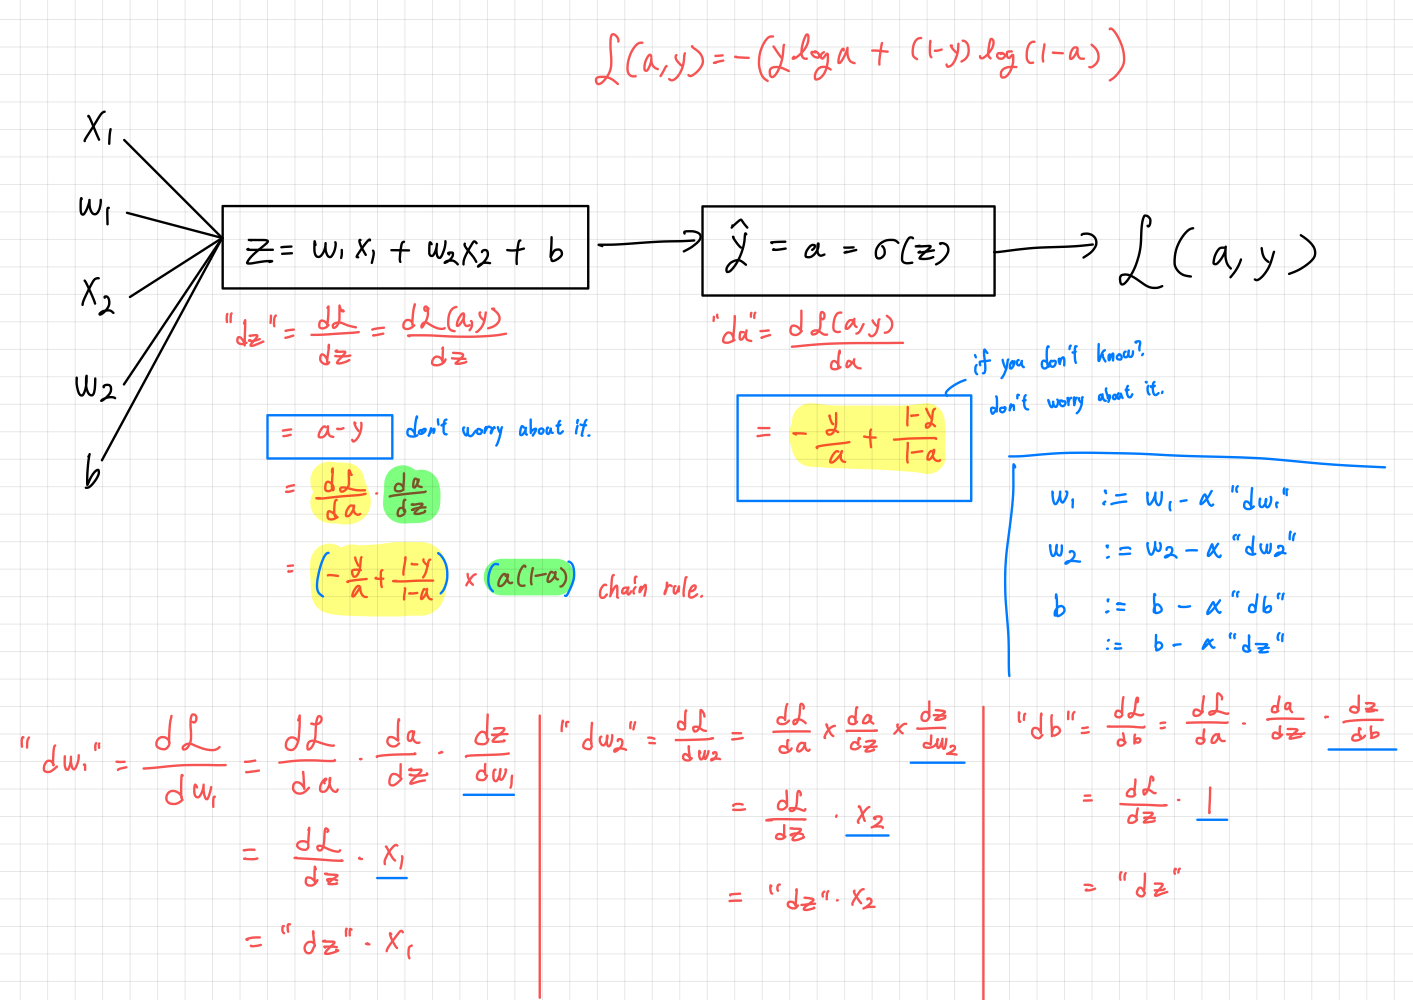 ℒ(a,y) = -(y log a + (1-y) log(1-a))
x₁
w₁
x₂
w₂
b
z = w₁x₁ + w₂x₂ + b
ŷ = a = σ(z)
ℒ(a,y)
"dz" = dℒ/dz = dℒ(a,y)/dz
= a-y
don't worry about it.
= dℒ/da · da/dz
= (-y/a + 1-y/1-a) × (a(1-a)) chain rule.
"da" = dℒ(a,y)/da
= -y/a + 1-y/1-a
if you don't know?
don't worry about it.
w₁ := w₁ - α "dw₁"
w₂ := w₂ - α "dw₂"
b := b - α "db"
:= b - α "dz"
"dw₁" = dℒ/dw₁ = dℒ/da · da/dz · dz/dw₁
= dℒ/dz · x₁
= "dz" · x₁
"dw₂" = dℒ/dw₂ = dℒ/da × da/dz × dz/dw₂
= dℒ/dz · x₂
= "dz" · x₂
"db" = dℒ/db = dℒ/da · da/dz · dz/db
= dℒ/dz · 1
= "dz"